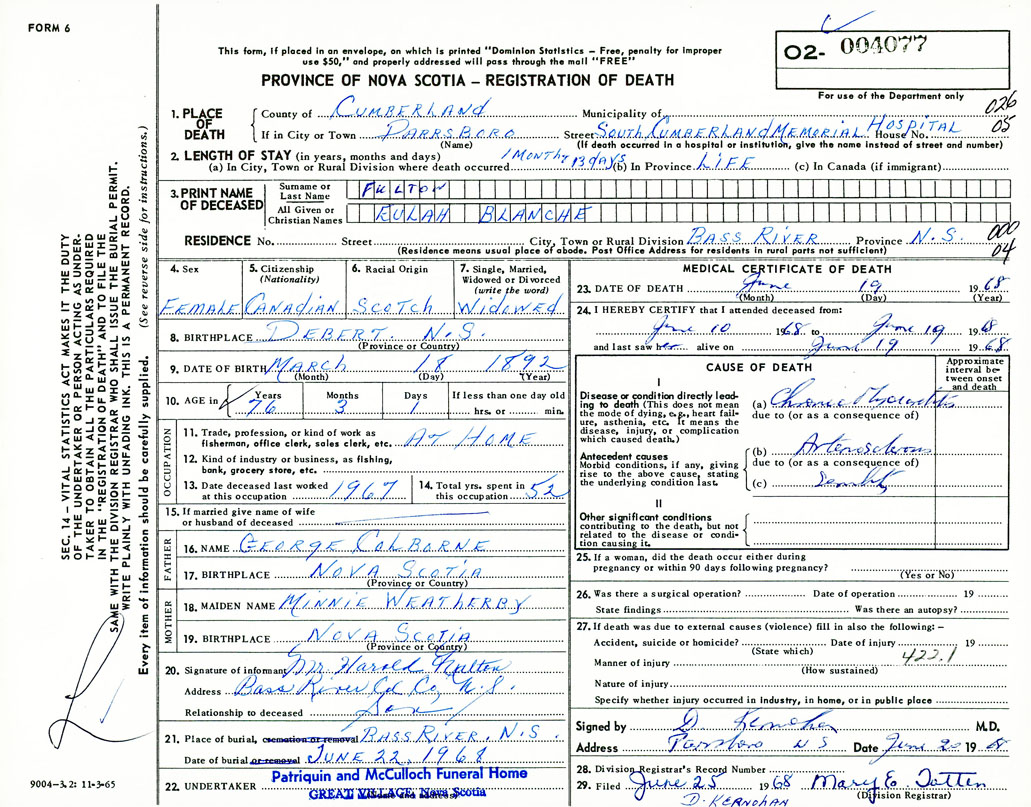 FORM 6
This form, if placed in an envelope, on which is printed "Dominion Statistics – Free, penalty for improper
use $50," and properly addressed will pass through the mail "FREE"
PROVINCE OF NOVA SCOTIA – REGISTRATION OF DEATH
O2- 004077
For use of the Department only
026
05
1. PLACE OF DEATH
County of CUMBERLAND Municipality of
If in City or Town PARRSBORO Street SOUTH CUMBERLAND MEMORIAL HOSPITAL House No.
(Name) (If death occurred in a hospital or institution, give the name instead of street and number)
2. LENGTH OF STAY (in years, months and days)
(a) In City, Town or Rural Division where death occurred 1 MONTH & 13 DAYS (b) In Province LIFE (c) In Canada (if immigrant)
3. PRINT NAME OF DECEASED
Surname or Last Name FULTON
All Given or Christian Names EULAH BLANCHE
RESIDENCE No. Street City, Town or Rural Division BASS RIVER Province N.S.
000
04
(Residence means usual place of abode. Post Office Address for residents in rural parts not sufficient)
4. Sex 5. Citizenship (Nationality) 6. Racial Origin 7. Single, Married, Widowed or Divorced (write the word)
FEMALE CANADIAN SCOTCH WIDOWED
8. BIRTHPLACE DEBERT, N.S.
(Province or Country)
9. DATE OF BIRTH MARCH 18 1892
(Month) (Day) (Year)
10. AGE in Years Months Days If less than one day old
76 3 1 hrs. or min.
OCCUPATION
11. Trade, profession, or kind of work as
fisherman, office clerk, sales clerk, etc. AT HOME
12. Kind of industry or business, as fishing,
bank, grocery store, etc.
13. Date deceased last worked at this occupation 1967
14. Total yrs. spent in this occupation 52
15. If married give name of wife
or husband of deceased
FATHER
16. NAME GEORGE COLBORNE
17. BIRTHPLACE NOVA SCOTIA
(Province or Country)
MOTHER
18. MAIDEN NAME MINNIE WEATHERBY
19. BIRTHPLACE NOVA SCOTIA
(Province or Country)
20. Signature of informant Mr. Harold Fulton
Address Bass River Col Co, N.S.
Relationship to deceased Son
21. Place of burial, cremation or removal BASS RIVER, N.S.
Date of burial or removal JUNE 22, 1968
22. UNDERTAKER
Patriquin and McCulloch Funeral Home
GREAT VILLAGE, Nova Scotia
MEDICAL CERTIFICATE OF DEATH
23. DATE OF DEATH June 19 1968
(Month) (Day) (Year)
24. I HEREBY CERTIFY that I attended deceased from:
June 10 1968 to June 19 1968
and last saw her alive on June 19 1968
CAUSE OF DEATH
Approximate interval between onset and death
I
Disease or condition directly leading to death (This does not mean the mode of dying, e.g., heart failure, asthenia, etc. It means the disease, injury, or complication which caused death.)
(a) Chronic Myocarditis
due to (or as a consequence of)
Antecedent causes
Morbid conditions, if any, giving rise to the above cause, stating the underlying condition last.
(b) Arteriosclerosis
due to (or as a consequence of)
(c) Senility
II
Other significant conditions
contributing to the death, but not related to the disease or condition causing it.
25. If a woman, did the death occur either during
pregnancy or within 90 days following pregnancy?
(Yes or No)
26. Was there a surgical operation? Date of operation 19
State findings Was there an autopsy?
27. If death was due to external causes (violence) fill in also the following: –
Accident, suicide or homicide? Date of injury 19
(State which) 422.1
Manner of injury
(How sustained)
Nature of injury
Specify whether injury occurred in industry, in home, or in public place
Signed by D. Kernohan M.D.
Address Parrsboro N S Date June 20 1968
28. Division Registrar's Record Number
29. Filed June 25 1968 Mary E. Tatten
(Division Registrar)
D. KERNOHAN
SEC. 14 – VITAL STATISTICS ACT MAKES IT THE DUTY
OF THE UNDERTAKER OR PERSON ACTING AS UNDER-
TAKER TO OBTAIN ALL THE PARTICULARS REQUIRED
IN THE "REGISTRATION OF DEATH" AND TO FILE THE
SAME WITH THE DIVISION REGISTRAR WHO SHALL ISSUE THE BURIAL PERMIT.
WRITE PLAINLY WITH UNFADING INK. THIS IS A PERMANENT RECORD.
Every item of information should be carefully supplied. (See reverse side for instructions.)
9004–3.2: 11-3-65